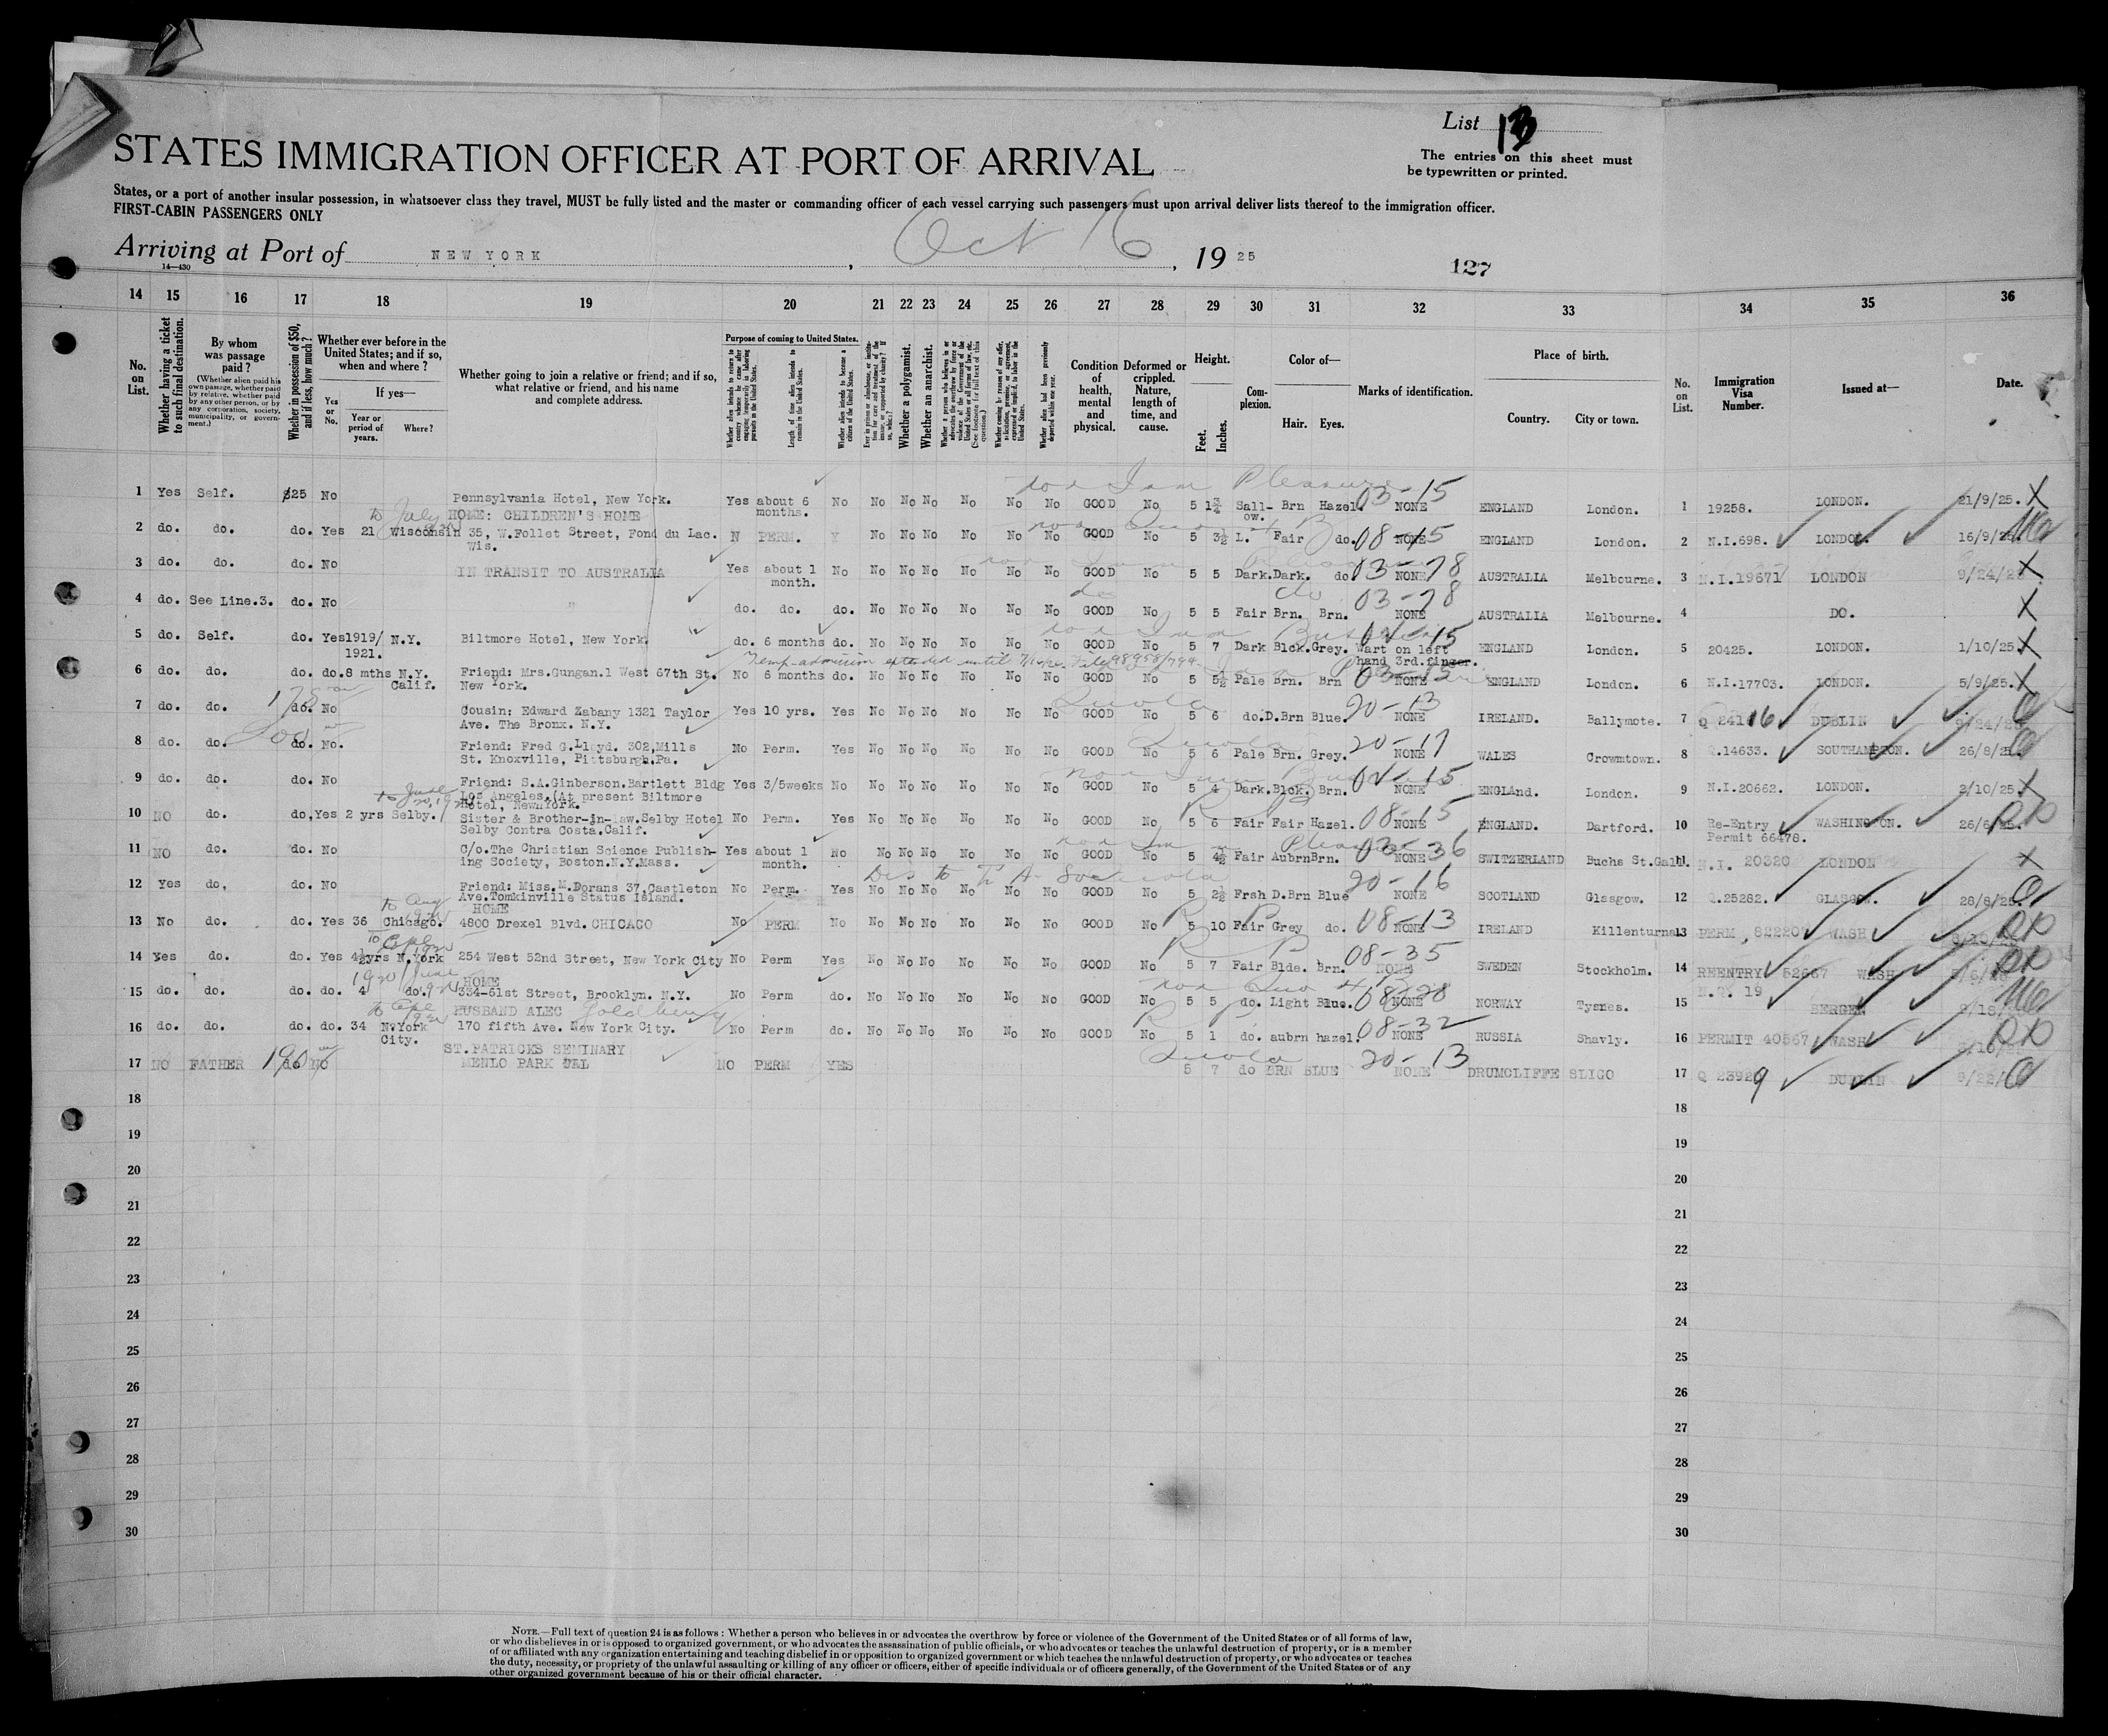 List 13
STATES IMMIGRATION OFFICER AT PORT OF ARRIVAL
The entries on this sheet must
be typewritten or printed.
States, or a port of another insular possession, in whatsoever class they travel, MUST be fully listed and the master or commanding officer of each vessel carrying such passengers must upon arrival deliver lists thereof to the immigration officer.
FIRST-CABIN PASSENGERS ONLY
Arriving at Port of NEW YORK, Oct 16, 1925
14—430
127
14 15 16 17 18 19 20 21 22 23 24 25 26 27 28 29 30 31 32 33 34 35 36
No. on List.
Whether having a ticket to such final destination.
By whom was passage paid?
(Whether alien paid his own passage, whether paid by relative, whether paid by any other person, or by any corporation, society, municipality, or government.)
Whether in possession of $50, and if less, how much?
Whether ever before in the United States; and if so, when and where?
Yes or No.
If yes—
Year or period of years.
Where?
Whether going to join a relative or friend; and if so, what relative or friend, and his name and complete address.
Purpose of coming to United States.
Whether alien intends to return to country whence he came after engaging temporarily in laboring pursuits in the United States.
Length of time alien intends to remain in the United States.
Whether alien intends to become a citizen of the United States.
Whether a polygamist.
Whether an anarchist.
Condition of health, mental and physical.
Deformed or crippled. Nature, length of time, and cause.
Height.
Feet. Inches.
Complexion.
Color of—
Hair. Eyes.
Marks of identification.
Place of birth.
Country. City or town.
No. on List.
Immigration Visa Number.
Issued at—
Date.
1 Yes Self. $25 No Pennsylvania Hotel, New York. Yes about 6 months. No No No No No No No GOOD No 5 1¾ Sallow. Brn Hazel. 03-15 NONE ENGLAND London. 1 19258. LONDON. 21/9/25. X
2 do. do. do. Yes 21 Wisconsin HOME: CHILDREN'S HOME 35, W.Follet Street, Fond du Lac. Wis. N PERM. Y No No No No No No GOOD No 5 3½ L. Fair do. 08-15 NONE ENGLAND London. 2 N.I.698. LONDON. 16/9/25
3 do. do. do. No IN TRANSIT TO AUSTRALIA Yes about 1 month. No No No No No No No GOOD No 5 5 Dark. Dark. do 03-78 NONE AUSTRALIA Melbourne. 3 N.I.19671 LONDON 9/24/25 X
4 do. See Line.3. do. No " do. do. do. No No No No No No GOOD No 5 5 Fair Brn. Brn. 03-78 NONE AUSTRALIA Melbourne. 4 DO. X
5 do. Self. do. Yes 1919/1921. N.Y. Biltmore Hotel, New York. do. 6 months do. No No No No No No GOOD No 5 7 Dark Blck. Grey. Wart on left hand 3rd.finger. ENGLAND London. 5 20425. LONDON. 1/10/25. X
Temp-admission extended until
6 do. do. do. do. 8 mths N.Y. Calif. Friend: Mrs.Gungan.1 West 67th St. New York. No 6 months do. No No No No No No GOOD No 5 5½ Pale Brn. Brn 03-15 NONE ENGLAND London. 6 N.I.17703. LONDON. 5/9/25. X
7 do. do. do. No Cousin: Edward Zabany 1321 Taylor Ave. The Bronx. N.Y. Yes 10 yrs. Yes No No No No No No GOOD No 5 6 do. D.Brn Blue. 20-13 NONE IRELAND. Ballymote. 7 Q 24116 DUBLIN 9/24/25
8 do. do. do. No. Friend: Fred G.Lloyd. 302,Mills St. Knoxville, Pittsburgh.Pa. No Perm. Yes No No No No No No GOOD No 5 6 Pale Brn. Grey. 20-17 NONE WALES Crowmtown. 8 Q.14633. SOUTHAMPTON. 26/8/25.
9 do. do. do. No Friend: S.A.Ginberson.Bartlett Bldg Los Angeles.(At present Biltmore Hotel, NewnYork. Yes 3/5weeks No No No No No No No GOOD No 5 4 Dark. Blck. Brn. NONE ENGLAnd. London. 9 N.I.20662. LONDON. 2/10/25. X
10 NO do. do. Yes 2 yrs Selby. Sister & Brother-in-law.Selby Hotel Selby Contra Costa.Calif. No Perm. Yes No No No No No No GOOD No 5 6 Fair Fair Hazel. 08-15 NONE ENGLAND. Dartford. 10 Re-Entry Permit 66478. WASHINGTON. 26/6/25.
11 NO do. do. No C/o.The Christian Science Publishing Society, Boston.N.Y.Mass. Yes about 1 month. No No No No No No No GOOD No 5 4½ Fair Aubrn Brn. 03-36 NONE SWITZERLAND Buchs St.Gall. 11 N.I. 20320 LONDON X
12 Yes do, do. No Friend: Miss.M.Dorans 37,Castleton Ave.Tomkinville Status Island. No Perm. Yes No No No No No No GOOD No 5 2½ Frsh D.Brn Blue 20-16 NONE SCOTLAND Glasgow. 12 Q.25282. GLASGOW. 28/8/25.
13 No do. do. Yes 36 Chicago. HOME 4800 Drexel Blvd. CHICAGO No PERM No No No No No No No GOOD No 5 10 Fair Grey do. 08-13 NONE IRELAND Killenturna 13 PERM 822207 WASH
14 Yes do. do. Yes 4½yrs N.York 254 West 52nd Street, New York City No Perm Yes No No No No No No GOOD No 5 7 Fair Blde. brn. 08-35 NONE SWEDEN Stockholm. 14 REENTRY 52667 WASH
15 do. do. do. do. 4 do. HOME 334-61st Street, Brooklyn. N.Y. No Perm do. No No No No No No GOOD No 5 5 do. Light Blue. 08-28 NONE NORWAY Tysnes. 15 BERGEN 9/18
16 do. do. do. do. 34 N.York City. HUSBAND ALEC Goldberg 170 fifth Ave. New York City. No Perm do. No No No No No No GOOD No 5 1 do. aubrn hazel. 08-32 NONE RUSSIA Shavly. 16 PERMIT 40567 WASH
17 NO FATHER do NO ST.PATRICKS SEMINARY MENLO PARK CAL NO PERM YES 5 7 do BRN BLUE 20-13 NONE DRUMCLIFFE SLIGO 17 Q 23929 DUBLIN 9/22/
18 18
19 19
20 20
21 21
22 22
23 23
24 24
25 25
26 26
27 27
28 28
29 29
30 30
NOTE.—Full text of question 24 is as follows: Whether a person who believes in or advocates the overthrow by force or violence of the Government of the United States or of all forms of law,
or who disbelieves in or is opposed to organized government, or who advocates the assassination of public officials, or who advocates or teaches the unlawful destruction of property, or is a member
of or affiliated with any organization entertaining and teaching disbelief in or opposition to organized government or which teaches the unlawful destruction of property, or who advocates or teaches
the duty, necessity, or propriety of the unlawful assaulting or killing of any officer or officers, either of specific individuals or of officers generally, of the Government of the United States or of any
other organized government because of his or their official character.